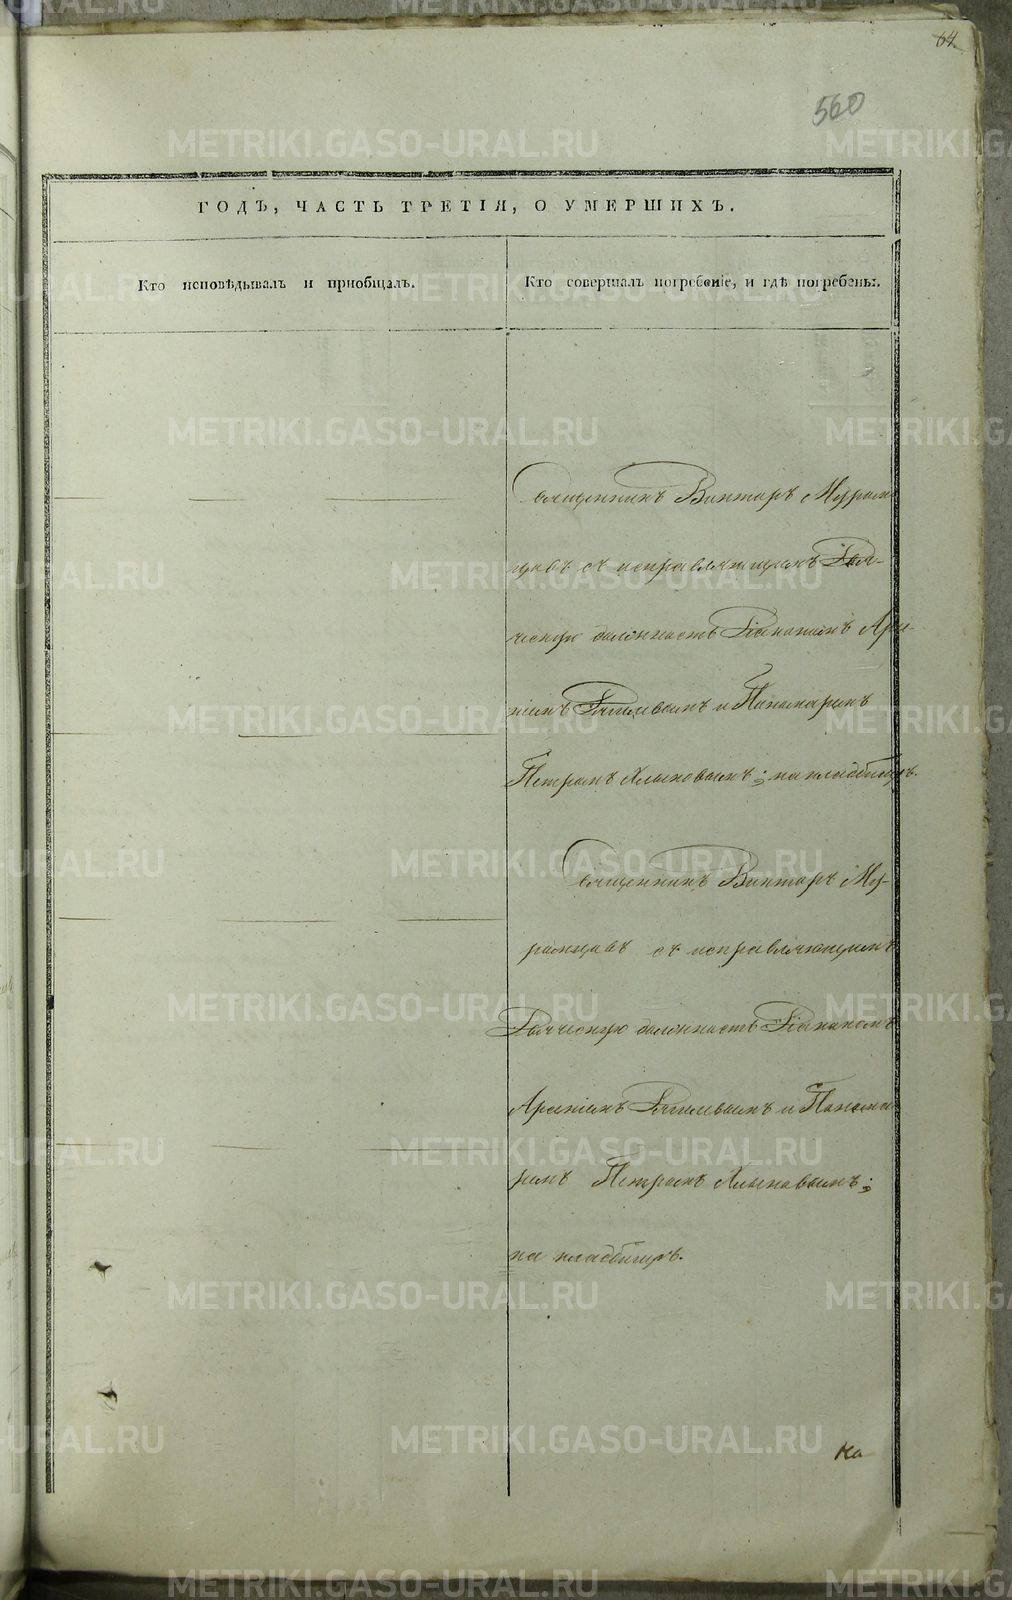 64.
560
ГОДЪ, ЧАСТЬ ТРЕТІЯ, О УМЕРШИХЪ.
Кто исповѣдывалъ и пріобщалъ.
Кто совершалъ погребеніе, и гдѣ погребены.
Священникъ Викторъ Муром-
цовъ съ исправляющимъ Дья-
ческую должность Діакономъ Арсе-
ніемъ и Пономаремъ
Петромъ Хлыновымъ; на кладбищѣ.
Священникъ Викторъ Му-
ромцовъ съ исправляющимъ
Дьяческую должность Діакономъ
Арсеніемъ и Понома-
ремъ Петромъ Хлыновымъ;
на кладбищѣ.
На
METRIKI.GASO-URAL.RU